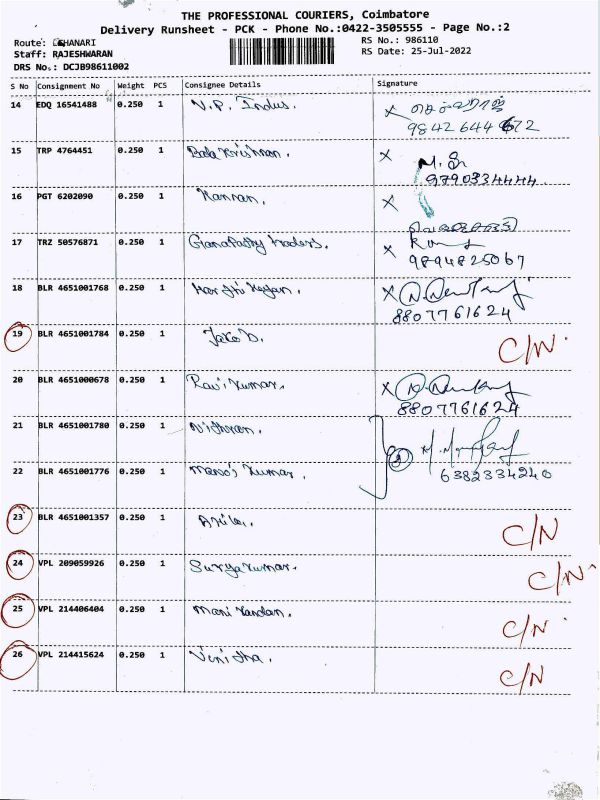 THE PROFESSIONAL COURIERS, Coimbatore
Delivery Runsheet - PCK - Phone No.:0422-3505555 - Page No.:2
Route: HANARI
RS No.: 986110
Staff: RAJESHWARAN
RS Date: 25-Jul-2022
DRS No.: DCJB98611002
S No Consignment No Weight PCS Consignee Details Signature
14 EDQ 16541488 0.250 1 V.P. Indus. x செல்வராஜ்
9842644672
15 TRP 4764451 0.250 1 Bala Krishnan. x
9790334444
16 PGT 6202090 0.250 1 Kannan. x
17 TRZ 50576871 0.250 1 Ganapathy traders. x
9894825067
18 BLR 4651001768 0.250 1 Karthikeyan. x
8807761624
19 BLR 4651001784 0.250 1 C/N
20 BLR 4651000678 0.250 1 Ravi Kumar. x
8807761624
21 BLR 4651001780 0.250 1 Nithran. x
22 BLR 4651001776 0.250 1 Manoj Kumar. 6382334240
23 BLR 4651001357 0.250 1 C/N
24 VPL 209059926 0.250 1 Suryakumar. C/N
25 VPL 214406404 0.250 1 Mani Kandan. C/N
26 VPL 214415624 0.250 1 Vinitha. C/N